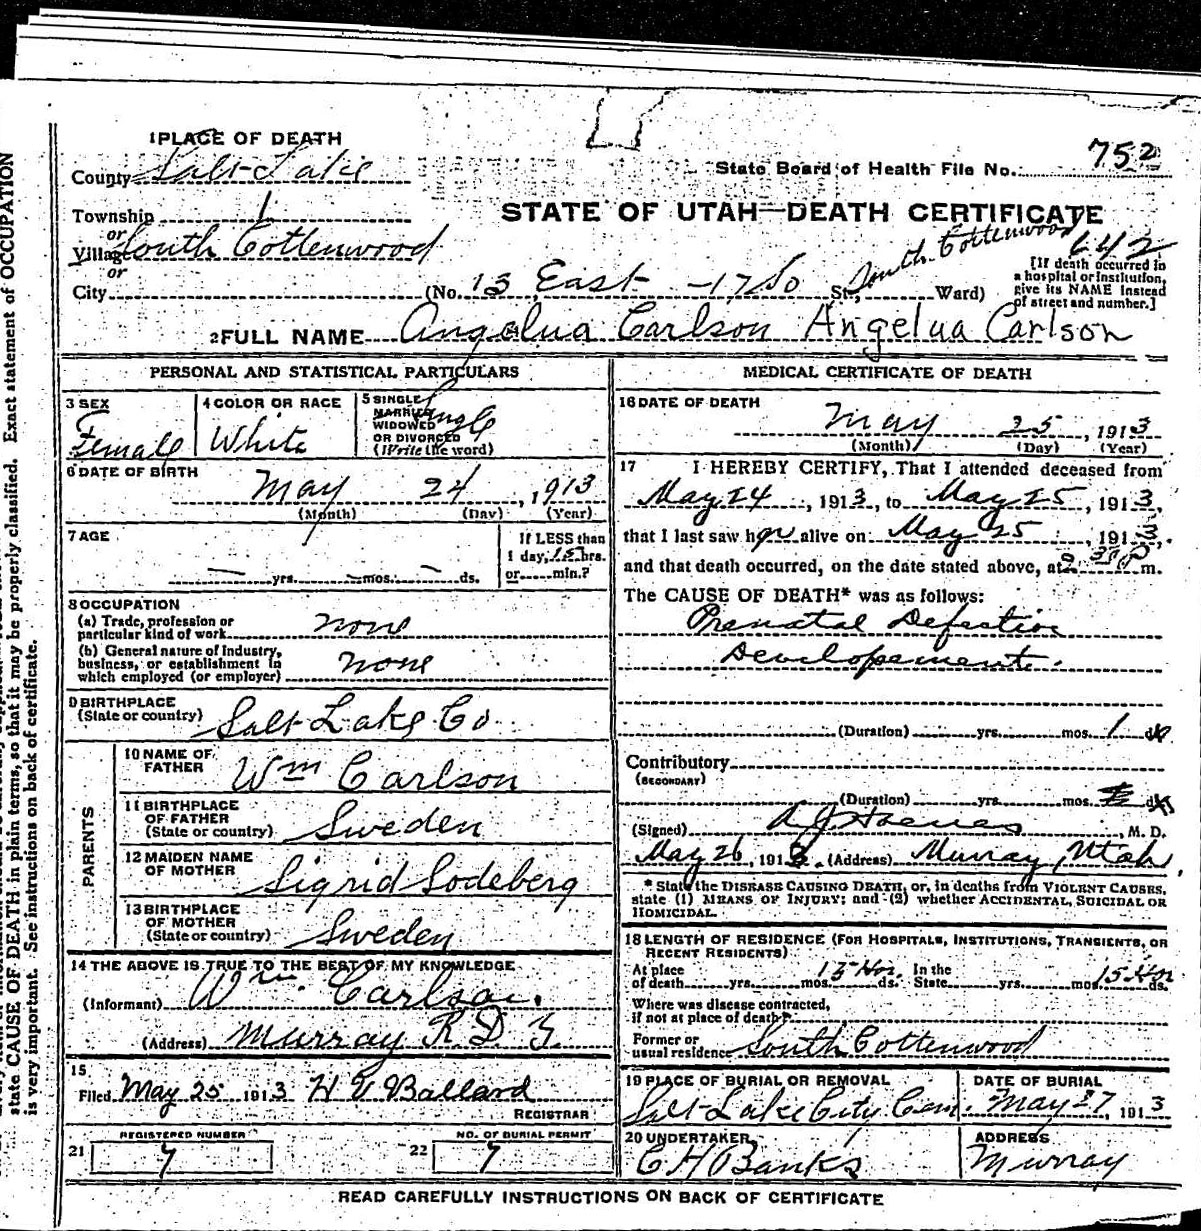 1 PLACE OF DEATH
County Salt Lake
State Board of Health File No. 752
Township 1
STATE OF UTAH—DEATH CERTIFICATE
or
Village South Cottonwood
South Cottonwood 642
or
City (No. 13 East St., Ward)
[If death occurred in
a hospital or institution,
give its NAME instead
of street and number.]
2 FULL NAME Angelua Carlson Angelua Carlson
PERSONAL AND STATISTICAL PARTICULARS
3 SEX
Female
4 COLOR OR RACE
White
5 SINGLE
MARRIED
WIDOWED
OR DIVORCED
(Write the word)
Single
6 DATE OF BIRTH
May 24, 1913
(Month) (Day) (Year)
7 AGE
— yrs. — mos. — ds.
If LESS than
1 day, 15 hrs.
or min.?
8 OCCUPATION
(a) Trade, profession or
particular kind of work none
(b) General nature of industry,
business, or establishment in
which employed (or employer) none
9 BIRTHPLACE
(State or country) Salt Lake Co
PARENTS
10 NAME OF
FATHER Wm Carlson
11 BIRTHPLACE
OF FATHER
(State or country) Sweden
12 MAIDEN NAME
OF MOTHER Sigrid Sodeberg
13 BIRTHPLACE
OF MOTHER
(State or country) Sweden
14 THE ABOVE IS TRUE TO THE BEST OF MY KNOWLEDGE
(Informant) Wm. Carlson.
(Address) Murray R.D.
15
Filed May 25 1913 H Ballard
REGISTRAR
REGISTERED NUMBER
21 7
NO. OF BURIAL PERMIT
22 7
MEDICAL CERTIFICATE OF DEATH
16 DATE OF DEATH
May 25, 1913
(Month) (Day) (Year)
17 I HEREBY CERTIFY, That I attended deceased from
May 24, 1913, to May 25, 1913,
that I last saw her alive on May 25, 1913,
and that death occurred, on the date stated above, at 2 30 P m.
The CAUSE OF DEATH* was as follows:
Prenatal Defective
Developement.
(Duration) yrs. mos. 1 ds
Contributory
(SECONDARY)
(Duration) yrs. mos. ds
(Signed) M. D.
May 26, 1913. (Address) Murray, Utah,
* State the DISEASE CAUSING DEATH, or, in deaths from VIOLENT CAUSES,
state (1) MEANS OF INJURY; and (2) whether ACCIDENTAL, SUICIDAL OR
HOMICIDAL.
18 LENGTH OF RESIDENCE (FOR HOSPITALS, INSTITUTIONS, TRANSIENTS, OR
RECENT RESIDENTS)
At place
of death yrs. mos. 15 Hor. ds. In the
State yrs. mos. 15 Hor ds.
Where was disease contracted,
if not at place of death?
Former or
usual residence South Cottonwood
19 PLACE OF BURIAL OR REMOVAL
Salt Lake City Cem.
DATE OF BURIAL
May 27, 1913
20 UNDERTAKER
C H Banks
ADDRESS
Murray
READ CAREFULLY INSTRUCTIONS ON BACK OF CERTIFICATE
state CAUSE OF DEATH in plain terms, so that it may be properly classified. Exact statement of OCCUPATION
is very important. See instructions on back of certificate.